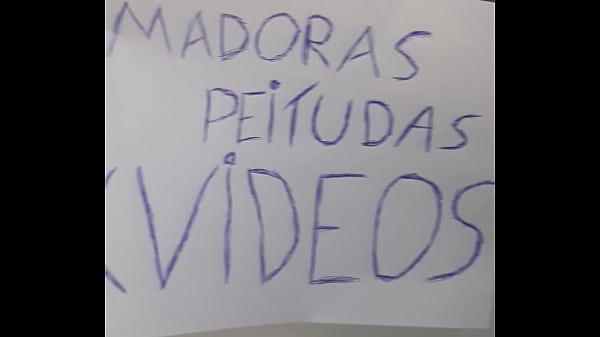 MADORAS
PEITUDAS
XVIDEOS